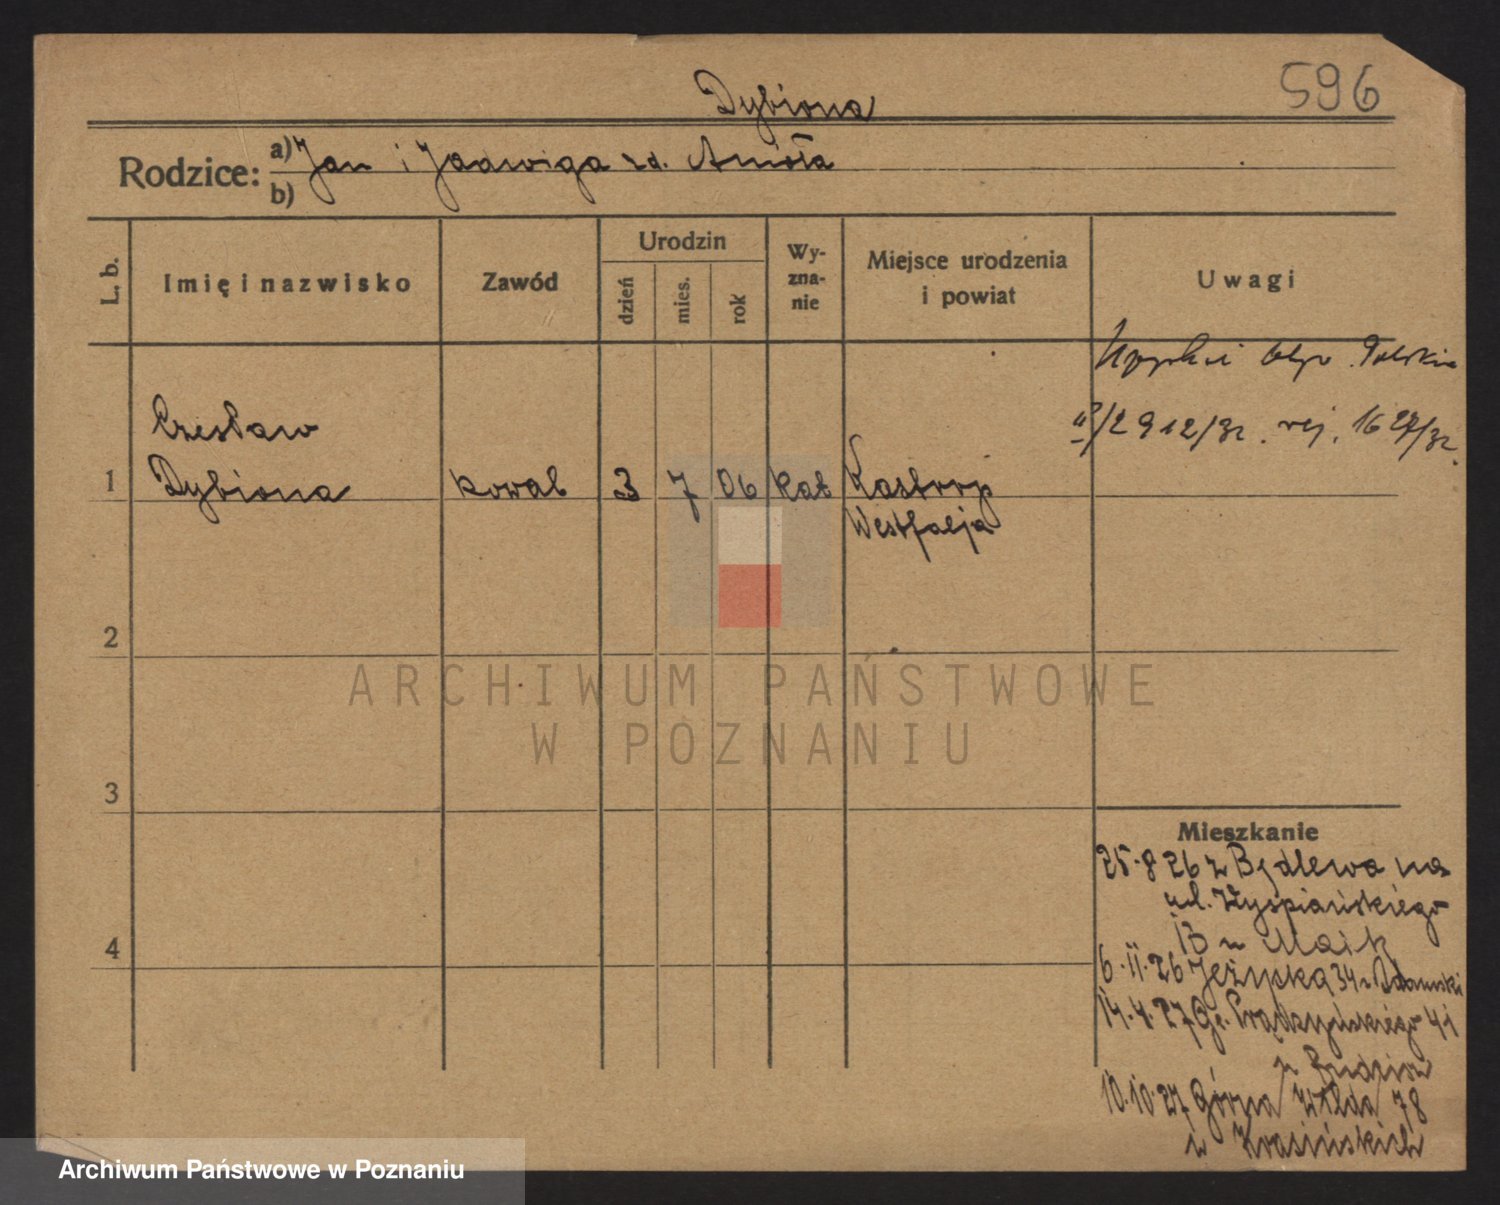 596
Dybiona
Rodzice: a) Jan i Jadwiga zd. Anioła
b)
L. b.
Imię i nazwisko
Zawód
Urodzin
dzień
mies.
rok
Wy-
zna-
nie
Miejsce urodzenia
i powiat
Uwagi
Polskie
/2912/32. rej. 1627/32.
Czesław
1 Dybiona kowal 3 7 06 kat Kastrop
Westfalja
2
ARCHIWUM PAŃSTWOWE
W POZNANIU
3
Mieszkanie
25.8 26 z Będlewa na
ul. Wyspiańskiego
13 u Maik
4
6.11.26 Jeżycka 34 u Adamski
14.4.27 Ge. Prądzyńskiego 41
u
10.10.27 Górna Wilda 78
u Krasińskich
Archiwum Państwowe w Poznaniu